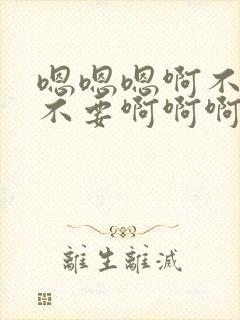 嗯嗯嗯啊不
不要啊啊啊
離生離滅